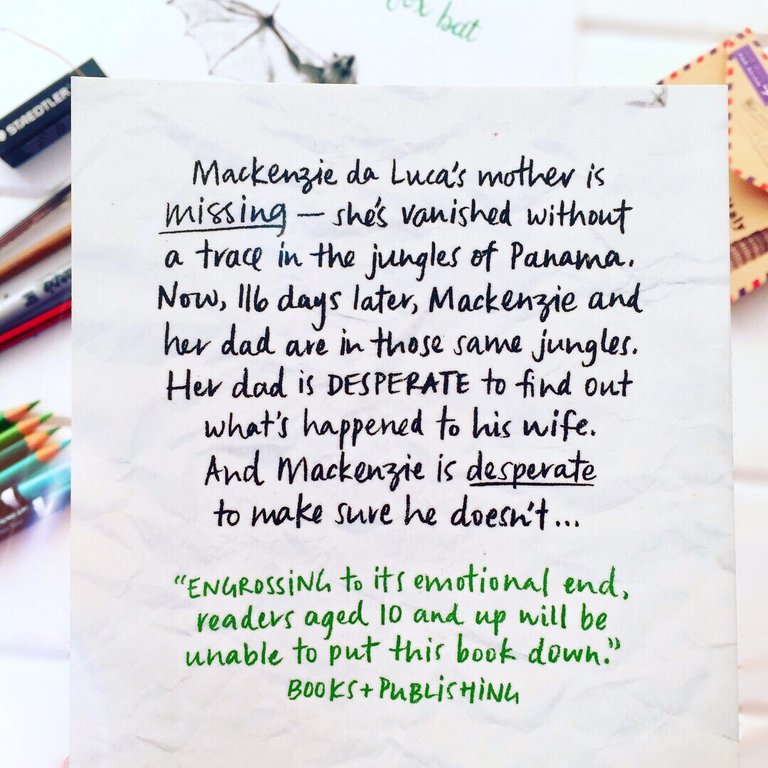 fox bat
STAEDTLER
Mackenzie da Luca's mother is
missing – she's vanished without
a trace in the jungles of Panama.
Now, 116 days later, Mackenzie and
her dad are in those same jungles.
Her dad is DESPERATE to find out
what's happened to his wife.
And Mackenzie is desperate
to make sure he doesn't...
"ENGROSSING to its emotional end,
readers aged 10 and up will be
unable to put this book down."
BOOKS+PUBLISHING